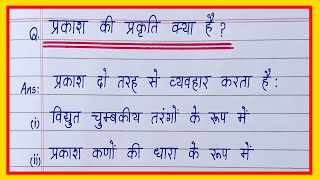 Q. प्रकाश की प्रकृति क्या है?
Ans: प्रकाश दो तरह से व्यवहार करता है:
(i) विद्युत चुम्बकीय तरंगों के रूप में
(ii) प्रकाश कणों की धारा के रूप में